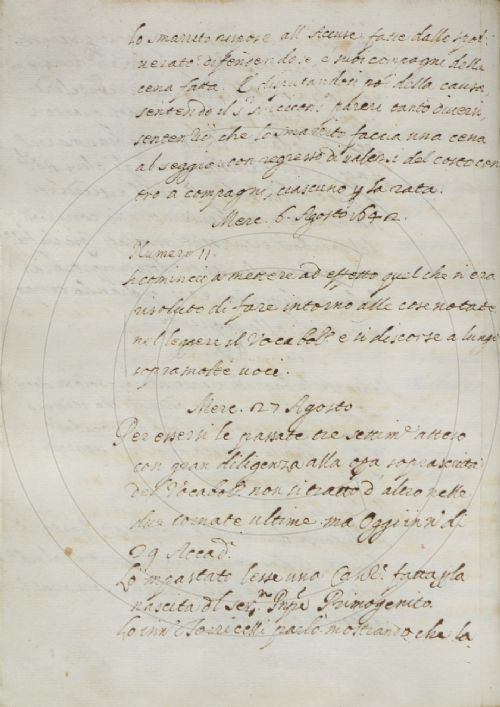 Lo smarrito rispose all'accuse fatte dallo spol:
verato difensendose, e suoi compagni della
cena fatta. E disputandosi poi della causa
sentendo il s.r Arcicon.o pareri tanto diversi
sentenziò, che lo smarrito faccia una cena
al seggio con regresso di valersi del costo con
tro a compagni, ciascuno p la rata.
Merc. 6. Agosto 1642.
Numero 11.
Si cominciò a mettere ad effetto quel che si era
risoluto di fare intorno alle cose notate
nel leggere il Vocabol.o e si discorse a lungo
sopra molte voci.
Merc. 27 Agosto
Per essersi le passate tre settim.e atteso
con gran diligenza alla opa soprascritta
del Vocabol.o non si trattò d'altro nelle
due tornate ultime ma oggi in n.o di
29 Accad.i
Lo incastato lesse una Canz.e fatta p la
nascita del Ser.mo Pnpe Primogenito.
Lo inn.o Torricelli parlò mostrando che la